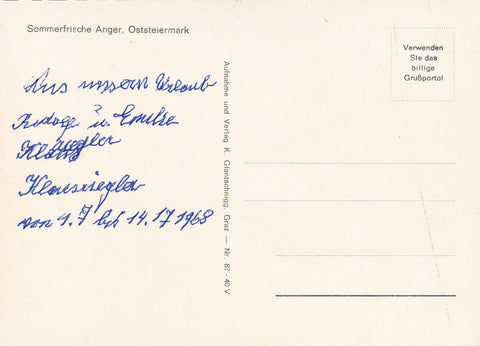 Sommerfrische Anger, Oststeiermark
Verwenden
Sie das
billige
Grußportol
Aus unsern Urlaub
Rudolf u. Emilie
Klausriegler
von 1.7 bis 14.17 1968
Aufnahme und Verlag K. Glantschnigg, Graz — Nr. 87 - 40 V